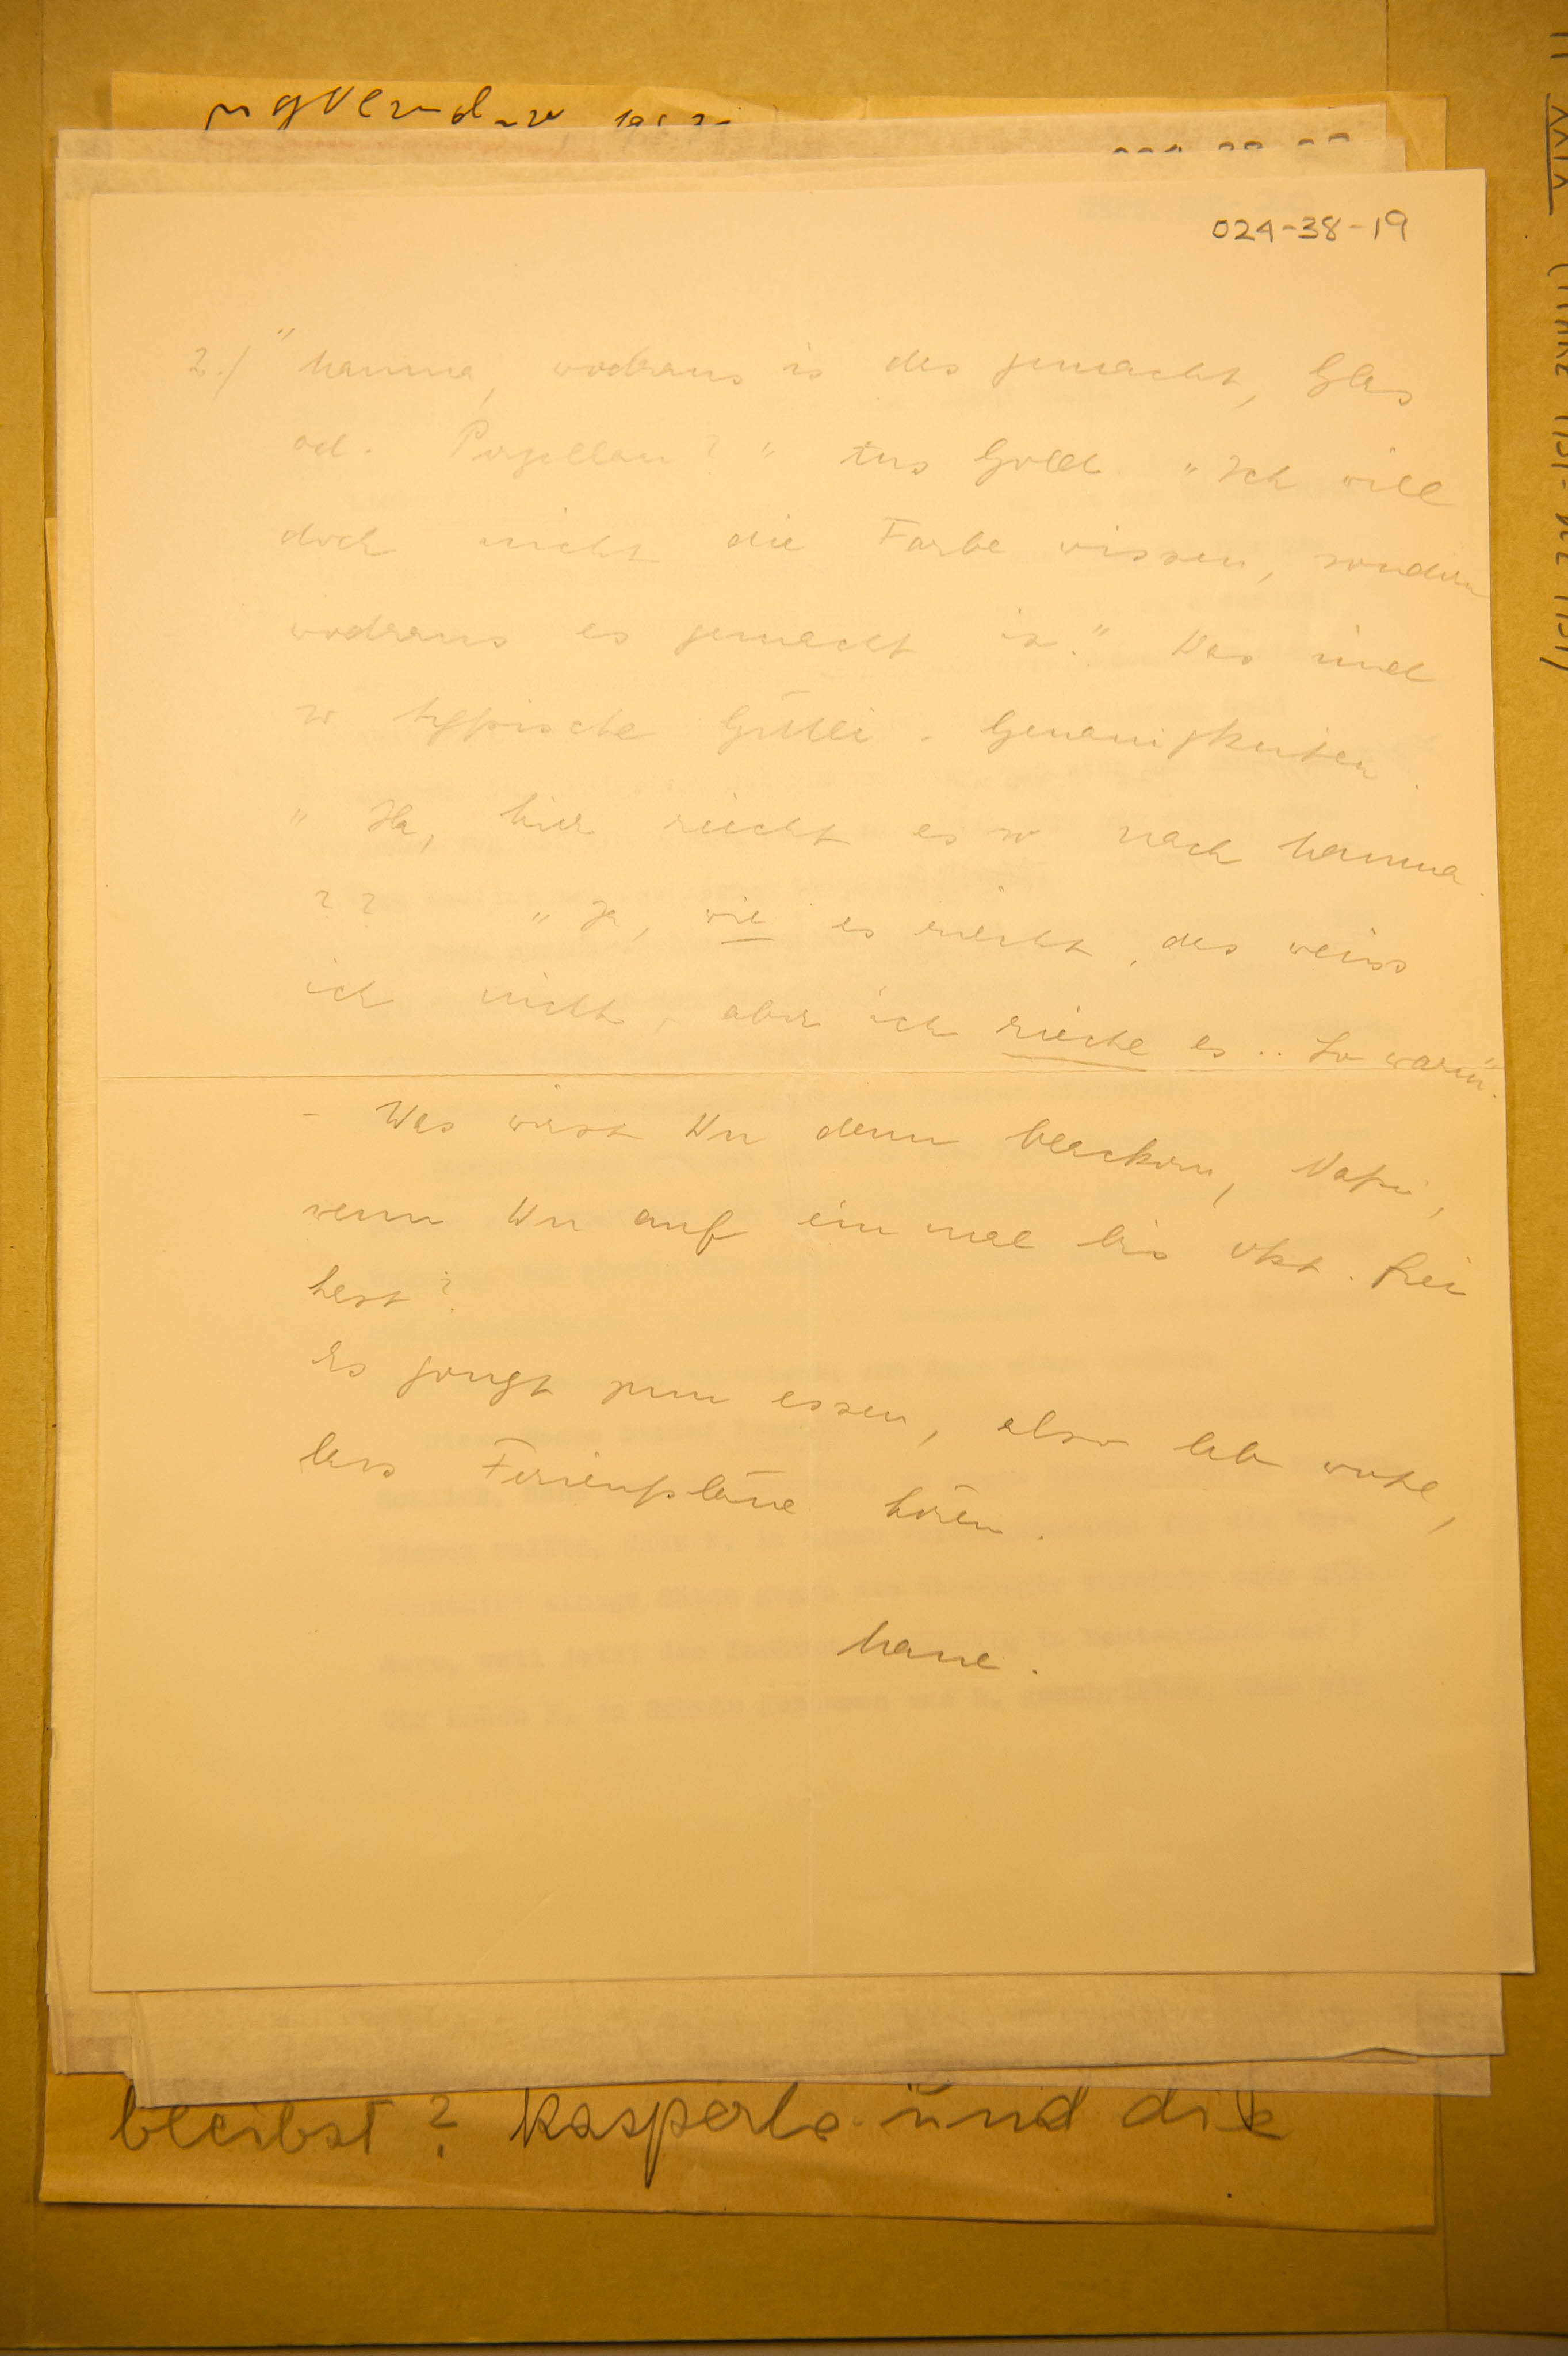 024-38-19
2./ "Mamma, wodraus is des gemacht, Glas
od. Porzellan?" Aus Gold. "Ich will
doch nicht die Farbe wissen, sondern
wodraus es gemacht is." Das sind
so typische Genauigkeiten.
"Ha, hier riecht es so nach Mamma.
?? "Ja, wie es riecht, das weiss
ich nicht, aber ich rieche es .. So warm".
- Was wirst Du denn beackern, Napi,
wenn Du auf ein mal bis Okt. frei
hast?
Es gongt zum essen, also leb wohl,
lass Ferienpläne hören.
Maue.
bleibst? Kasperle und die